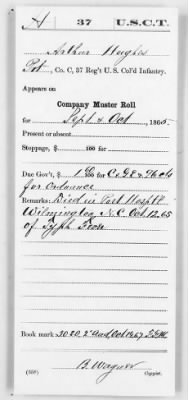 H 37 U.S.C.T.
Arthur Hughes
Pvt., Co. C, 37 Reg't U. S. Col'd Infantry.
Appears on
Company Muster Roll
for Sept & Oct, 1865.
Present or absent
Stoppage, $ 100 for
Due Gov't, $ 100 for
for Ordnance
Remarks: Died in Post Hosptl
Wilmington N.C. Oct 12.65
of Typh Fever
Book mark:
(358) B. Wagner
Copyist.